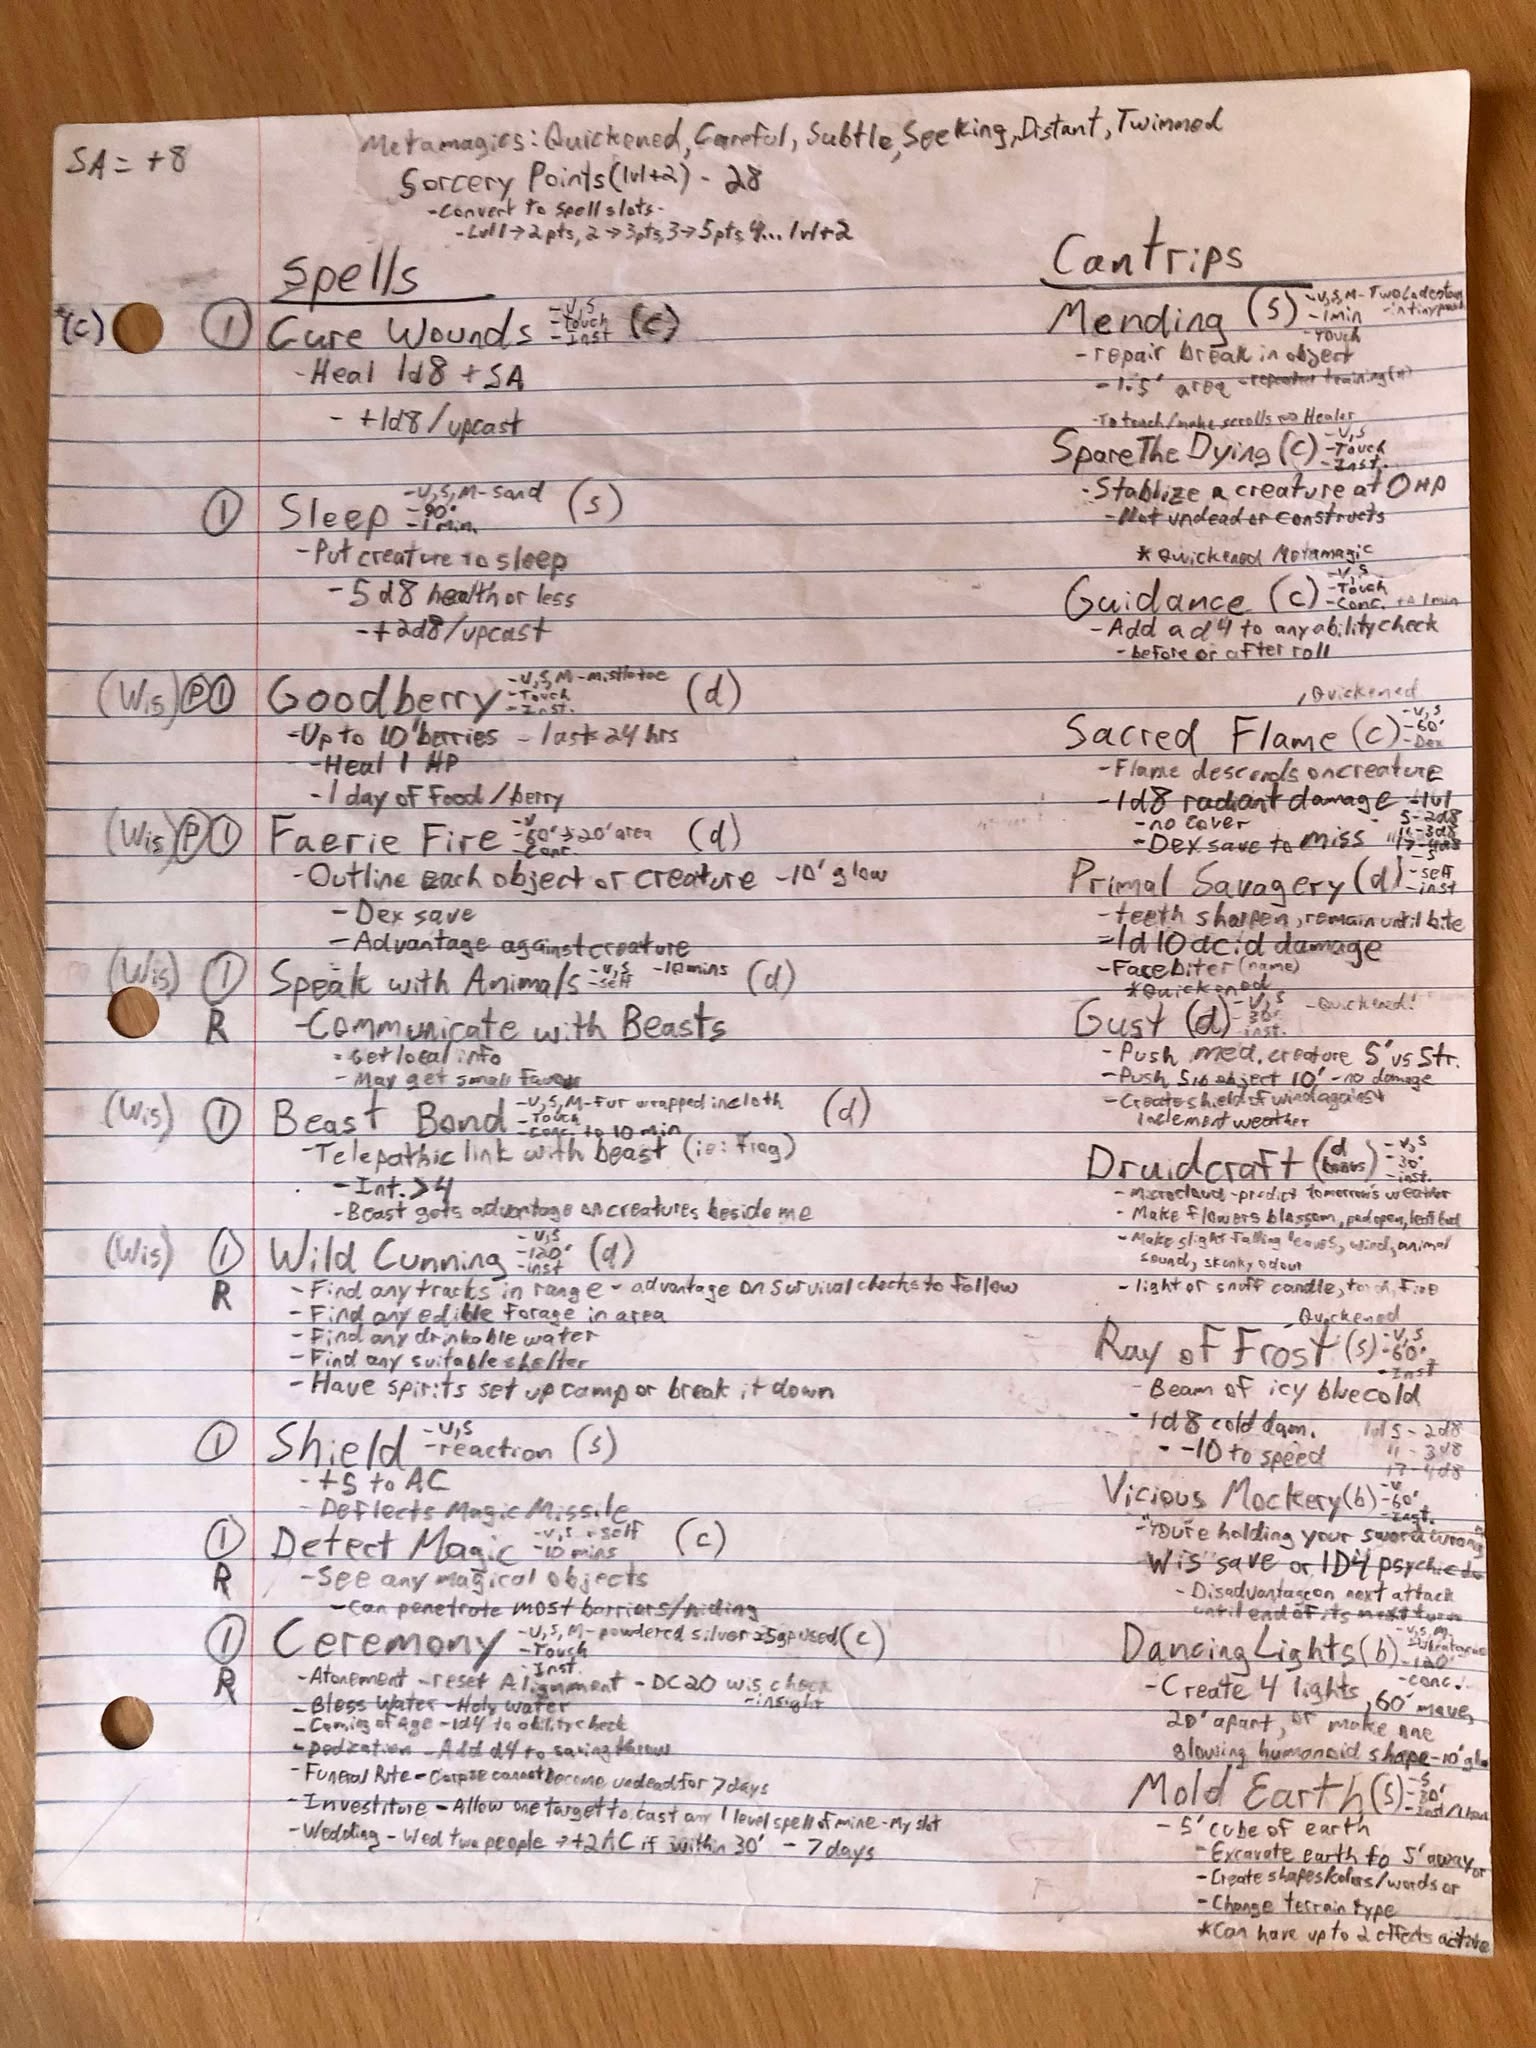 SA = +8
Metamagics: Quickened, Careful, Subtle, Seeking, Distant, Twinned
Sorcery Points (lvl+2) - 28
- Convert to spell slots -
- Lvl 1 → 2 pts, 2 → 3 pts, 3 → 5 pts, 4... lvl+2
Spells
(c) ① Cure Wounds (c)
- V, S
- Touch
- Inst
- Heal 1d8 + SA
- +1d8/upcast
① Sleep (s)
- V, S, M - sand
- 90'
- 1 min
- Put creature to sleep
- 5d8 health or less
- +2d8/upcast
(Wis) Ⓟ ① Goodberry (d)
- V, S, M - mistletoe
- Touch
- Inst.
- Up to 10 berries - lasts 24 hrs
- Heal 1 HP
- 1 day of food/berry
(Wis) Ⓟ ① Faerie Fire (d)
- V
- 60' → 20' area
- Conc
- Outline each object or creature - 10' glow
- Dex save
- Advantage against creature
(Wis) ① Speak with Animals (d)
- V, S - 10 mins
- self
R
- Communicate with Beasts
- Get local info
- May get small favor
(Wis) ① Beast Bond (d)
- V, S, M - fur wrapped in cloth
- Touch
- Conc. to 10 min
- Telepathic link with beast (ie: frog)
- Int. > 4
- Beast gets advantage on creatures beside me
(Wis) ① Wild Cunning (d)
- V, S
- 120'
- inst
R
- Find any tracks in range - advantage on survival checks to follow
- Find any edible forage in area
- Find any drinkable water
- Find any suitable shelter
- Have spirits set up camp or break it down
① Shield (s)
- V, S
- reaction
- +5 to AC
- Deflects Magic Missile
① Detect Magic (c)
- V, S - self
- 10 mins
R
- See any magical objects
- Can penetrate most barriers/hiding
① Ceremony (c)
- V, S, M - powdered silver 25gp used
- Touch
- Inst.
R
- Atonement - reset Alignment - DC20 wis check
- insight
- Bless Water - Holy water
- Coming of Age - 1d4 to ability check
- Dedication - Add d4 to saving throw
- Funeral Rite - Corpse cannot become undead for 7 days
- Investiture - Allow one target to cast any 1 level spell of mine - My slot
- Wedding - Wed two people → +2 AC if within 30' - 7 days
Cantrips
Mending (s)
- V, S, M - Two Lodestones
- 1 min - in tiny pouch
- Touch
- repair break in object
- 1.5' area
- To teach/make scrolls Healer
Spare The Dying (c)
- V, S
- Touch
- Inst.
- Stablize a creature at 0 HP
- Not undead or constructs
* Quickened Metamagic
Guidance (c)
- V, S
- Touch
- Conc. 1 min
- Add a d4 to any ability check
- before or after roll
Quickened
Sacred Flame (c)
- V, S
- 60'
- Dex
- Flame descends on creature
- 1d8 radiant damage - lvl
5 - 2d8
11 - 3d8
17 - 4d8
- no cover
- Dex save to miss
Primal Savagery (d)
- S
- self
- inst
- teeth sharpen, remain until bite
- 1d10 acid damage
- Facebiter (name)
* Quickened
Gust (d)
- V, S
- 30'
- inst.
- Quickened!
- Push med. creature 5' vs Str.
- Push 5 lb object 10' - no damage
- Create shield of wind against
inclement weather
Druidcraft (d bonus)
- V, S
- 30'
- inst.
- Microcloud - predict tomorrow's weather
- Make flowers blossom, pod open, leaf bud
- Make slight falling leaves, wind, animal
sound, skunky odour
- light or snuff candle, torch, fire
Quickened
Ray of Frost (s)
- V, S
- 60'
- Inst
- Beam of icy blue cold
- 1d8 cold dam.
- -10 to speed
lvl 5 - 2d8
11 - 3d8
17 - 4d8
Vicious Mockery (b)
- V
- 60'
- Inst.
- "You're holding your sword wrong"
Wis save or 1D4 psychic
- Disadvantage on next attack
until end of its next turn
Dancing Lights (b)
- V, S, M
- 120'
- conc.
- Create 4 lights, 60' move,
20' apart, or make one
glowing humanoid shape - 10' glo
Mold Earth (s)
- S
- 30'
- Inst/1 hour
- 5' cube of earth
- Excavate earth to 5' away or
- Create shapes/colors/words or
- Change terrain type
* Can have up to 2 effects active